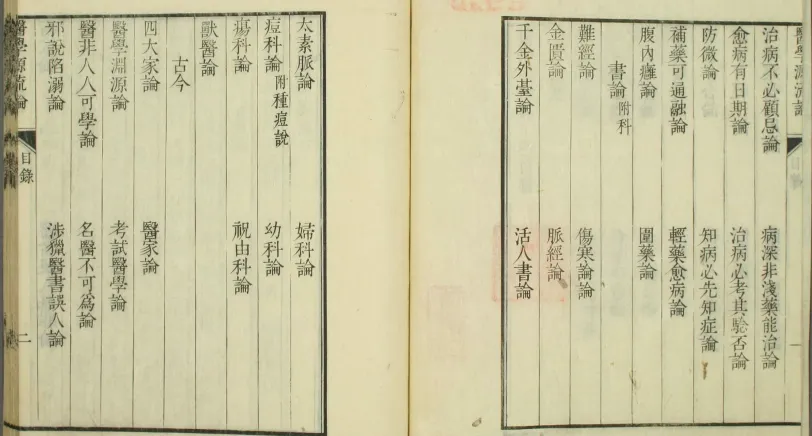 治病不必顧忌論 病深非淺藥能治論
愈病有日期論 治病必考其驗否論
防微論 知病必先知症論
補藥可通融論 輕藥愈病論
腹內癰論 圍藥論
書論附科
難經論 傷寒論論
金匱論 脈經論
千金外臺論 活人書論
太素脈論 婦科論
痘科論附種痘說 幼科論
瘍科論 祝由科論
獸醫論
古今
四大家論 醫家論
醫學淵源論 考試醫學論
醫非人人可學論 名醫不可爲論
邪說陷溺論 涉獵醫書誤人論
醫學源流論 目錄 二